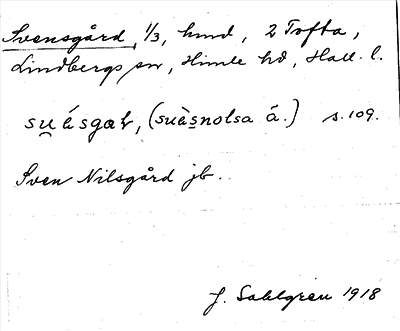 Svensgård, 1/3, hmd, 2 Tofta,
Lindbergs sn, Himle hd, Hall. l.
su̯ésgaꞇ, (suès̱nolsa á.) s. 109.
Sven Nilsgård jb.
J. Sahlgren 1918